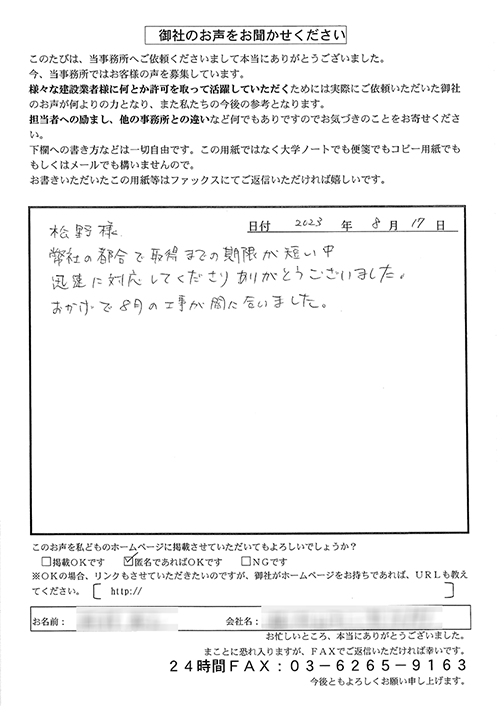 御社のお声をお聞かせください
このたびは、当事務所へご依頼くださいまして本当にありがとうございました。
今、当事務所ではお客様の声を募集しています。
様々な建設業者様に何とか許可を取って活躍していただくためには実際にご依頼いただいた御社
のお声が何よりの力となり、また私たちの今後の参考となります。
担当者への励まし、他の事務所との違いなど何でもありですのでお気づきのことをお寄せくださ
い。
下欄への書き方などは一切自由です。この用紙ではなく大学ノートでも便箋でもコピー用紙でも
もしくはメールでも構いませんので。
お書きいただいたこの用紙等はファックスにてご返信いただければ嬉しいです。
日付 2023 年 8 月 17 日
松野様
弊社の都合で取得までの期限が短い中
迅速に対応してくださりありがとうございました。
おかげで8月の工事が間に合いました。
このお声を私どものホームページに掲載させていただいてもよろしいでしょうか?
□掲載OKです ☑匿名であればOKです □NGです
※OKの場合、リンクもさせていただきたいのですが、御社がホームページをお持ちであれば、URLも教え
てください。 〔 http:// 〕
お名前： 会社名：
お忙しいところ、本当にありがとうございました。
まことに恐れ入りますが、FAXでご返信いただければ幸いです。
24時間FAX：03-6265-9163
今後ともよろしくお願い申し上げます。